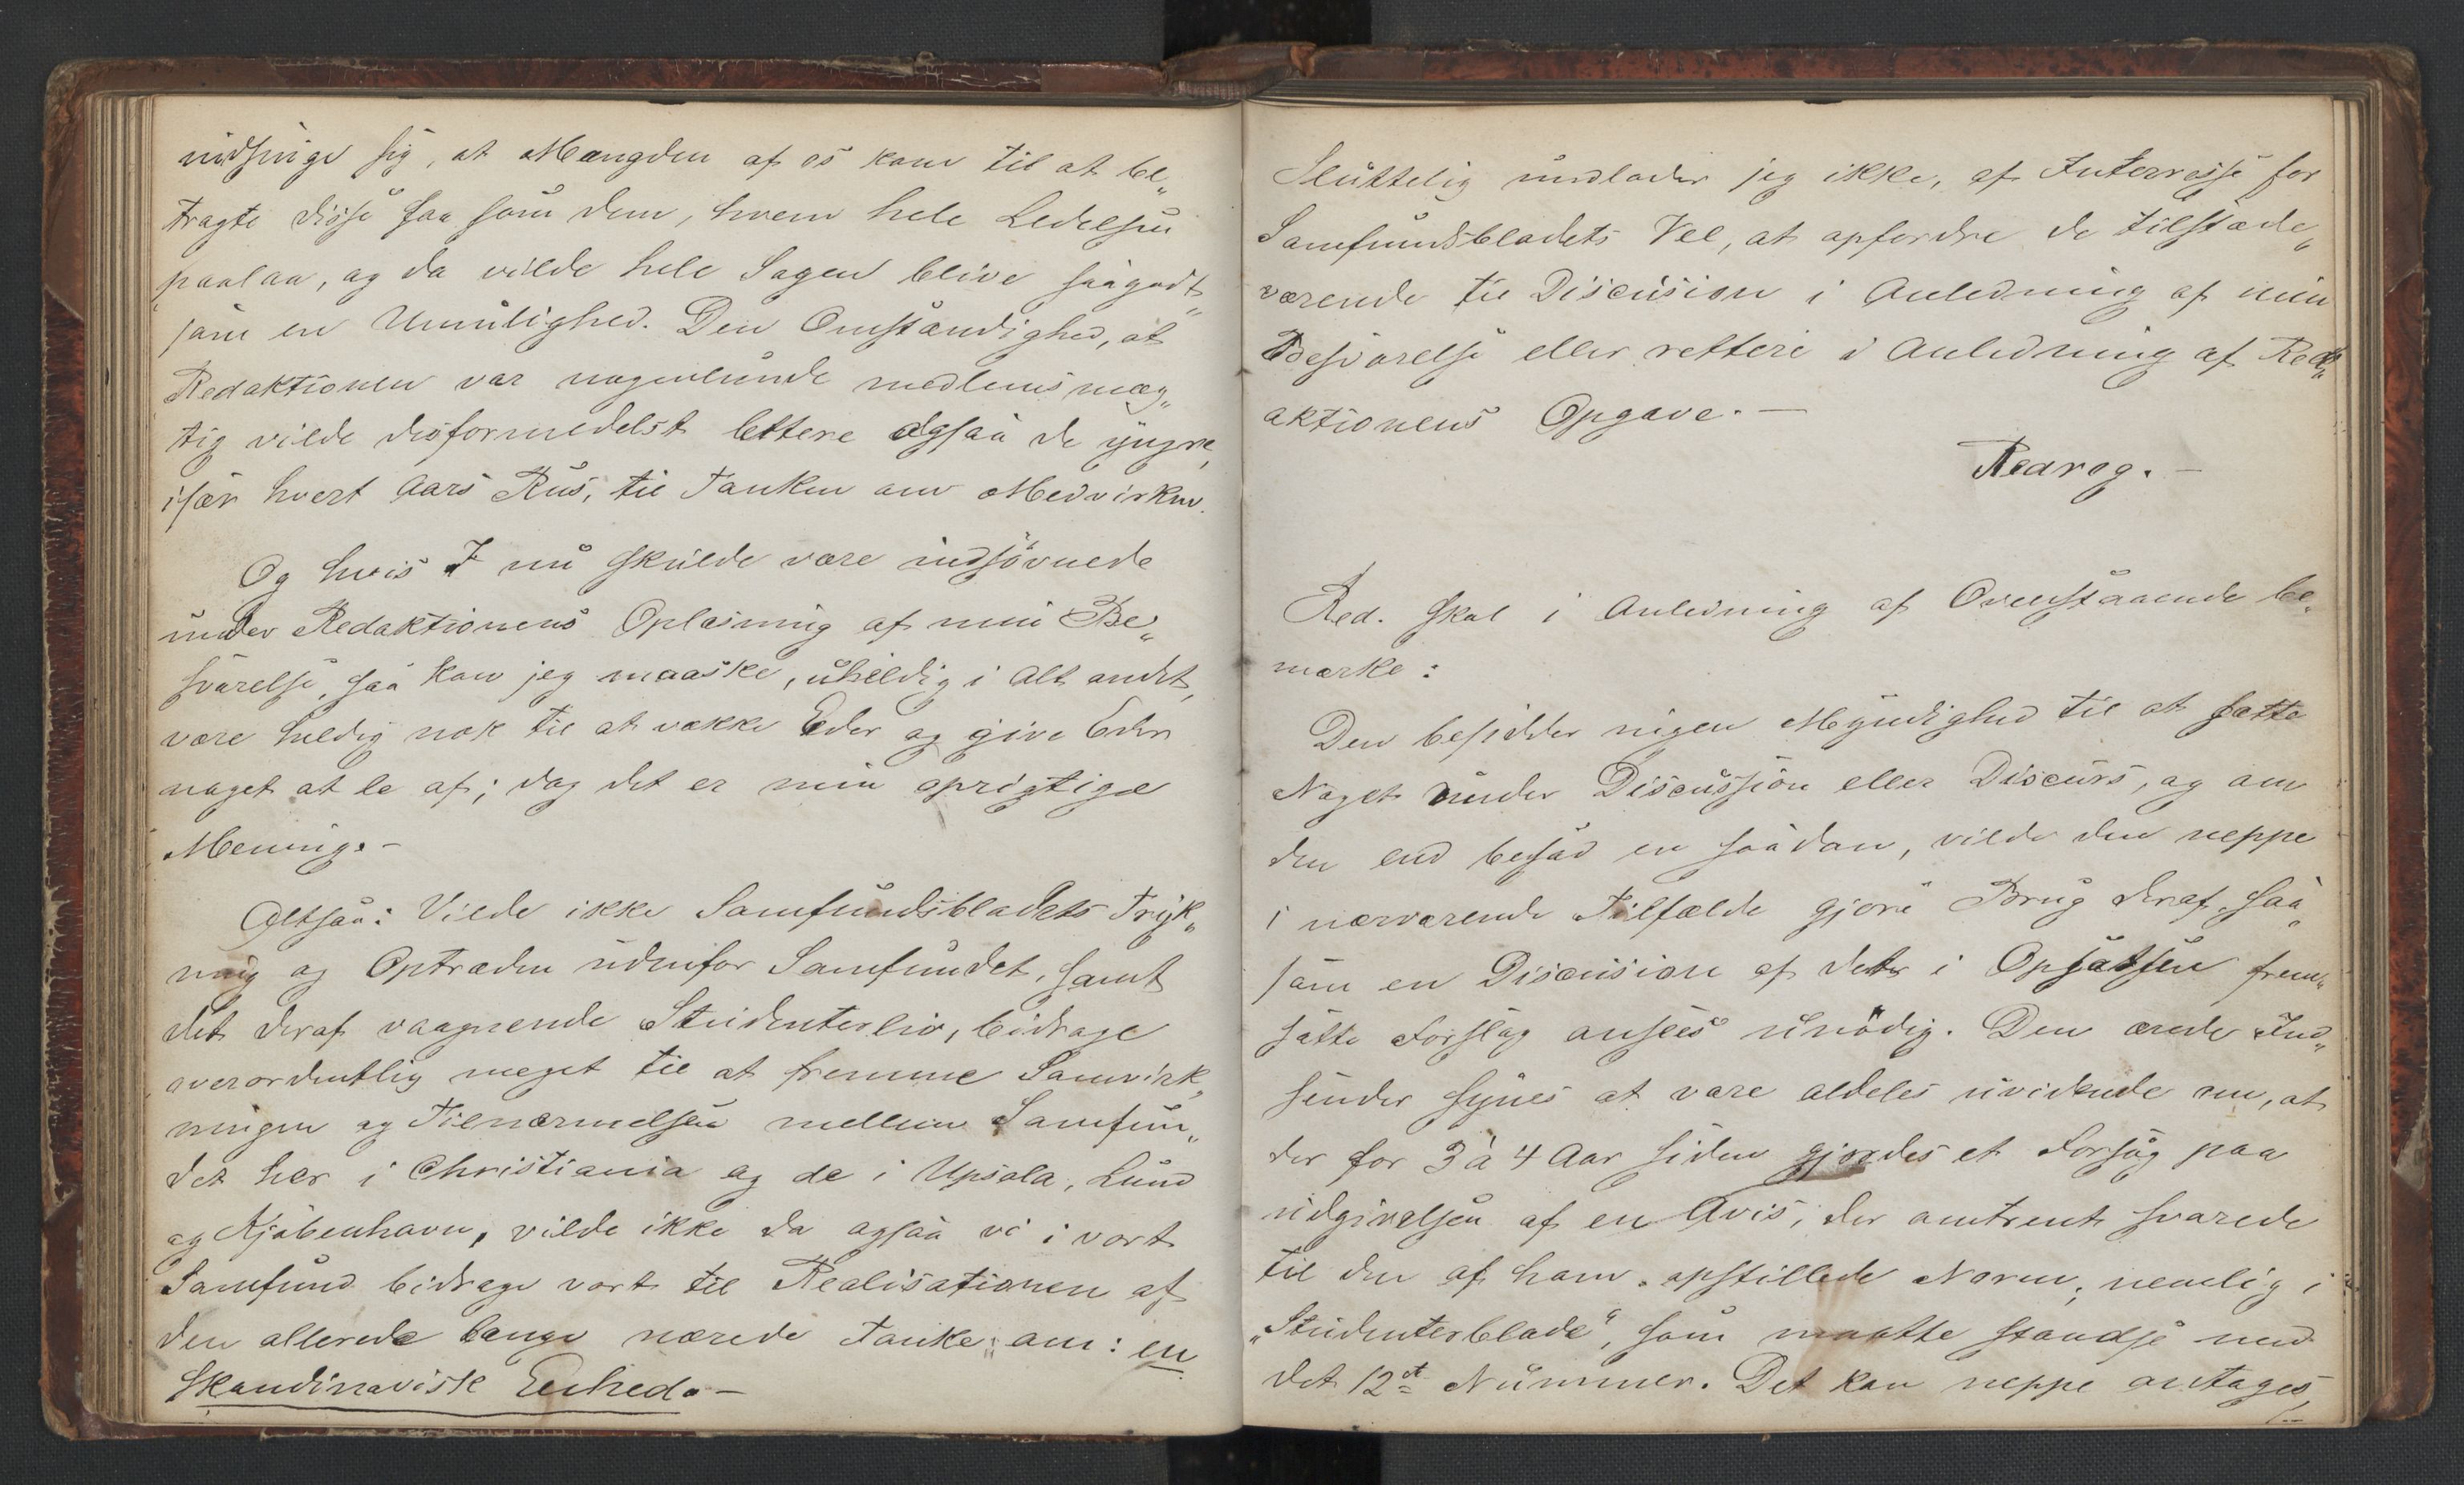 indsnige sig, at Mængden af os kom til at be„
tragte disse saa som dem, hvem hele Ledelsen
paalaa, og da vilde hele Sagen blive saagodt„
som en Umulighed. Den Omstændighed, at
Redaktionen var nogenlunde medlemsmæg„
tig vilde desformedelst lettere ogsaa de yngre,
især hvert Aars Rus, til Tanken om Medvirken.
Og hvis I nu skulde være indsøvnede
under Redaktionens Oplæsning af min Be„
svarelse, saa kan jeg maaske, uheldig i Alt andet,
være heldig nok til at vække Eder og give Eder
noget at le af; dog det er min oprigtige
Mening. –
Altsaa: Vilde ikke Samfundsbladets Tryk„
ning og Optræden udenfor Samfundet, samt
det deraf vaagnende Studenterliv, bidrage
overordentlig meget til at fremme Samvirk„
ningen og Tilnærmelsen mellem Samfun„
det her i Christiania og de i Upsala, Lund
og Kjøbenhavn, vilde ikke da ogsaa vi i vort
Samfund bidrage vort til Realisationen af
den allerede længe nærede Tanke om: en
skandinavisk Eenhed. –
Sluttelig undlader jeg ikke, af Interresse for
Samfundsbladets Vel, at opfordre de tilstæde„
værende til Discusion i Anledning af min
Besvarelse eller rettere i Anledning af Red„
aktionens Opgave. –
Redrog. –
Red. skal i Anledning af Ovenstaaende be„
mærke:
Den besidder ingen Myndighed til at sætte
Noget under Discussion eller Discurs, og om
den end besad en saadan, vilde den neppe
i nærværende Tilfælde gjøre Brug deraf, saa„
som en Discusion af det i Opsatsen frem„
satte Forslag ansees unødig. Den ærede Ind„
sender synes at være aldeles uvidende om, at
der for 3 à 4 Aar siden gjordes et Forsøg paa
udgivelsen af en Avis, der omtrent svarede
til den af ham opstillede Norm, nemlig i
„Studenterblade“, som maatte standse med
det 12te Nummer. Det kan neppe antages